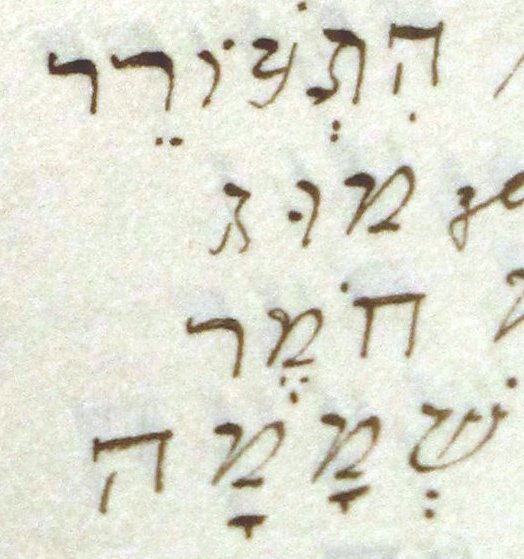 הִתְעוֹרֵר
מוּג
חֹמֶר
שְׁמָמָה